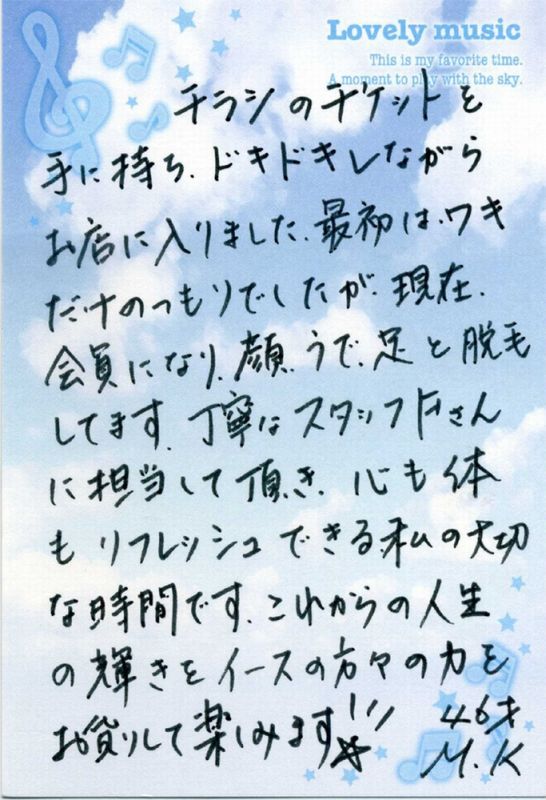 Lovely music
This is my favorite time.
A moment to play with the sky.
チラシのチケットを
手に持ち、ドキドキしながら
お店に入りました。最初は、ワキ
だけのつもりでしたが、現在、
会員になり、顔、うで、足と脱毛
してます。丁寧なスタッフFさん
に担当して頂き、心も体
もリフレッシュできる私の大切
な時間です。これからの人生
の輝きをイースの方々の力を
お貸りして楽しみます!!☆ 46才
M.K